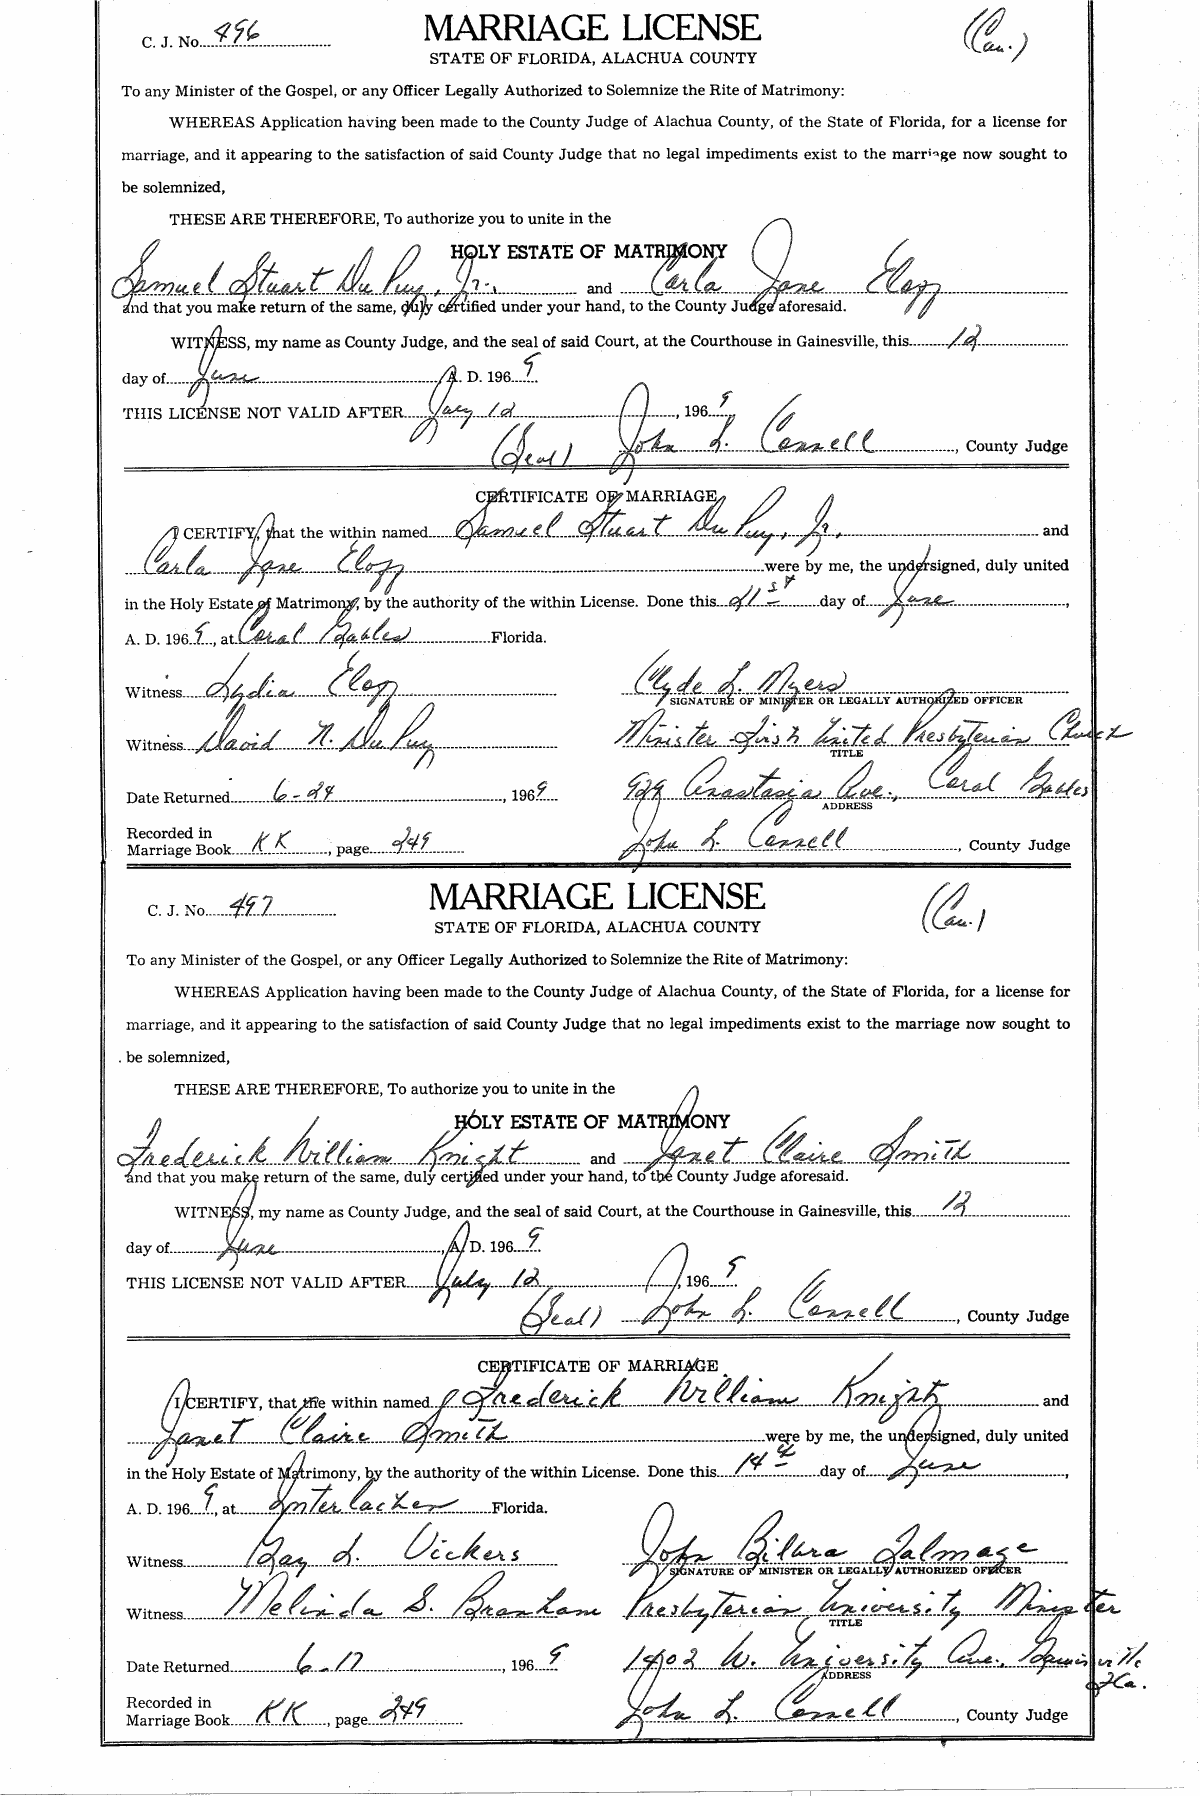 C. J. No. 496
MARRIAGE LICENSE
(Cau.)
STATE OF FLORIDA, ALACHUA COUNTY
To any Minister of the Gospel, or any Officer Legally Authorized to Solemnize the Rite of Matrimony:
WHEREAS Application having been made to the County Judge of Alachua County, of the State of Florida, for a license for
marriage, and it appearing to the satisfaction of said County Judge that no legal impediments exist to the marriage now sought to
be solemnized,
THESE ARE THEREFORE, To authorize you to unite in the
HOLY ESTATE OF MATRIMONY
Samuel Stuart Du Puy, Jr., and Carla Jane
and that you make return of the same, duly certified under your hand, to the County Judge aforesaid.
WITNESS, my name as County Judge, and the seal of said Court, at the Courthouse in Gainesville, this 12
day of June A. D. 1969
THIS LICENSE NOT VALID AFTER July 12, 1969
(Seal) John L. Connell, County Judge
CERTIFICATE OF MARRIAGE
I CERTIFY, that the within named Samuel Stuart Du Puy, Jr. and
Carla Jane were by me, the undersigned, duly united
in the Holy Estate of Matrimony, by the authority of the within License. Done this 21st day of June,
A. D. 1969, at Coral Gables Florida.
Witness Lydia
Clyde L. Myers
SIGNATURE OF MINISTER OR LEGALLY AUTHORIZED OFFICER
Witness David N. Du Puy
Minister - First United Presbyterian Church
TITLE
Date Returned 6-24, 1969
929 Anastasia Ave., Coral Gables
ADDRESS
Recorded in
Marriage Book KK, page 249
John L. Connell, County Judge
C. J. No. 497
MARRIAGE LICENSE
(Cau.)
STATE OF FLORIDA, ALACHUA COUNTY
To any Minister of the Gospel, or any Officer Legally Authorized to Solemnize the Rite of Matrimony:
WHEREAS Application having been made to the County Judge of Alachua County, of the State of Florida, for a license for
marriage, and it appearing to the satisfaction of said County Judge that no legal impediments exist to the marriage now sought to
be solemnized,
THESE ARE THEREFORE, To authorize you to unite in the
HOLY ESTATE OF MATRIMONY
Frederick William Knight and Janet Claire Smith
and that you make return of the same, duly certified under your hand, to the County Judge aforesaid.
WITNESS, my name as County Judge, and the seal of said Court, at the Courthouse in Gainesville, this 12
day of June, A. D. 1969
THIS LICENSE NOT VALID AFTER July 12, 1969
(Seal) John L. Connell, County Judge
CERTIFICATE OF MARRIAGE
I CERTIFY, that the within named Frederick William Knight and
Janet Claire Smith were by me, the undersigned, duly united
in the Holy Estate of Matrimony, by the authority of the within License. Done this 14th day of June,
A. D. 1969, at Interlachen Florida.
Witness Gay L. Vickers
John Talmage
SIGNATURE OF MINISTER OR LEGALLY AUTHORIZED OFFICER
Witness Melinda S. Branham
Presbyterian University Minister
TITLE
Date Returned 6-17, 1969
1402 W. University Ave., Gainesville
Fla.
ADDRESS
Recorded in
Marriage Book KK, page 249
John L. Connell, County Judge